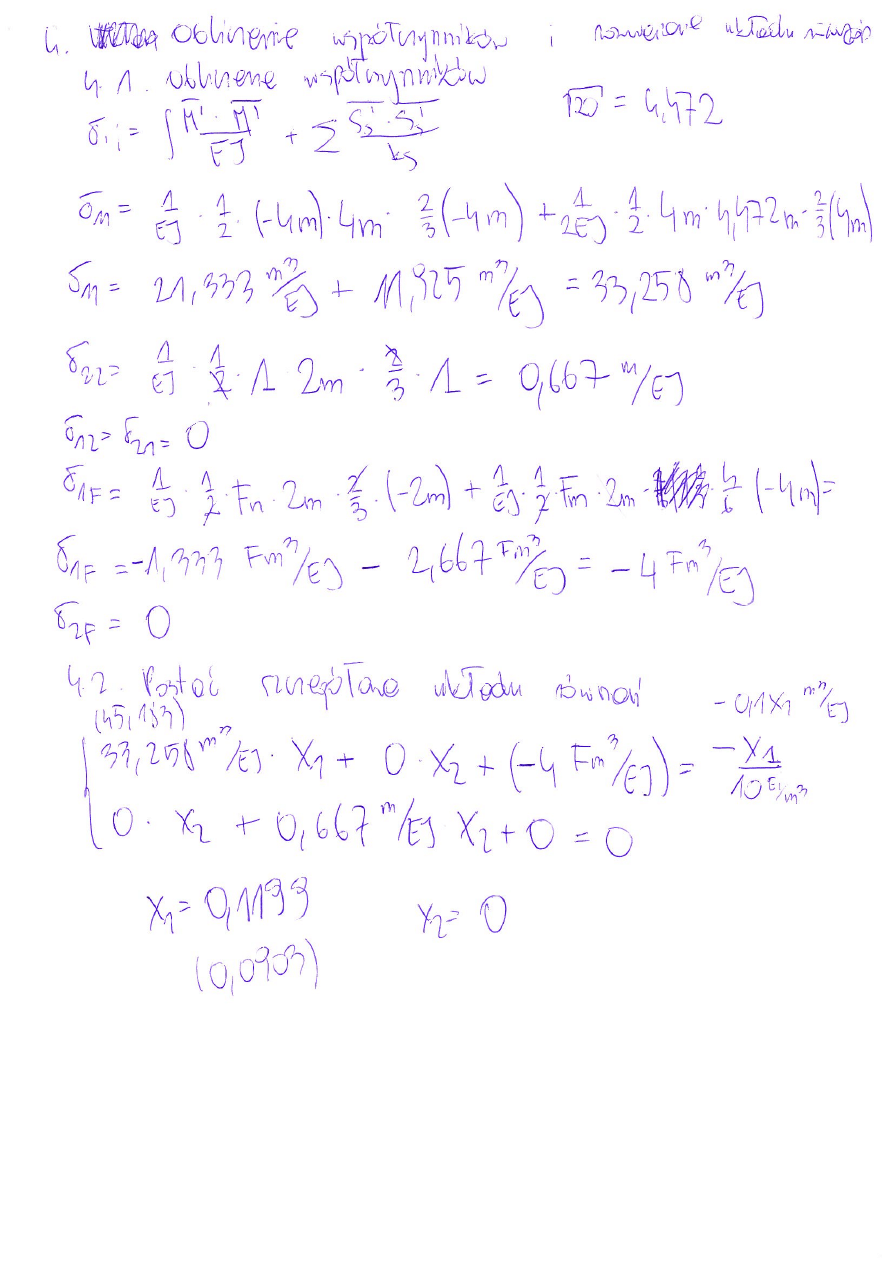 4. Obliczenie współczynników i rozwiązanie układu równań
4.1. obliczenie współczynników
√20 = 4,472
δii = ∫ M̄'·M̄'/EJ + Σ S̄s'·S̄s'/ks
δ11 = 1/EJ · 1/2 · (-4m)·4m · 2/3(-4m) + 1/2EJ · 1/2 · 4m·4,472m·2/3(4m)
δ11 = 21,333 m³/EJ + 11,925 m³/EJ = 33,258 m³/EJ
δ22 = 1/EJ · 1/2 · 1 2m · 2/3 · 1 = 0,667 m/EJ
δ12 = δ21 = 0
δ1F = 1/EJ · 1/2 · Fm · 2m · 2/3 · (-2m) + 1/EJ · 1/2 · Fm · 2m · 4/6 (-4m) =
δ1F = -1,333 Fm³/EJ - 2,667 Fm³/EJ = -4 Fm³/EJ
δ2F = 0
4.2. Postać szczegółowa układu równań
(45,183)
-0,1x1 m³/EJ
33,258 m³/EJ · X1 + 0·X2 + (-4 Fm³/EJ) = -X1/10 EJ/m³
0 · X2 + 0,667 m/EJ X2 + 0 = 0
X1 = 0,1199 X2 = 0
(0,0903)